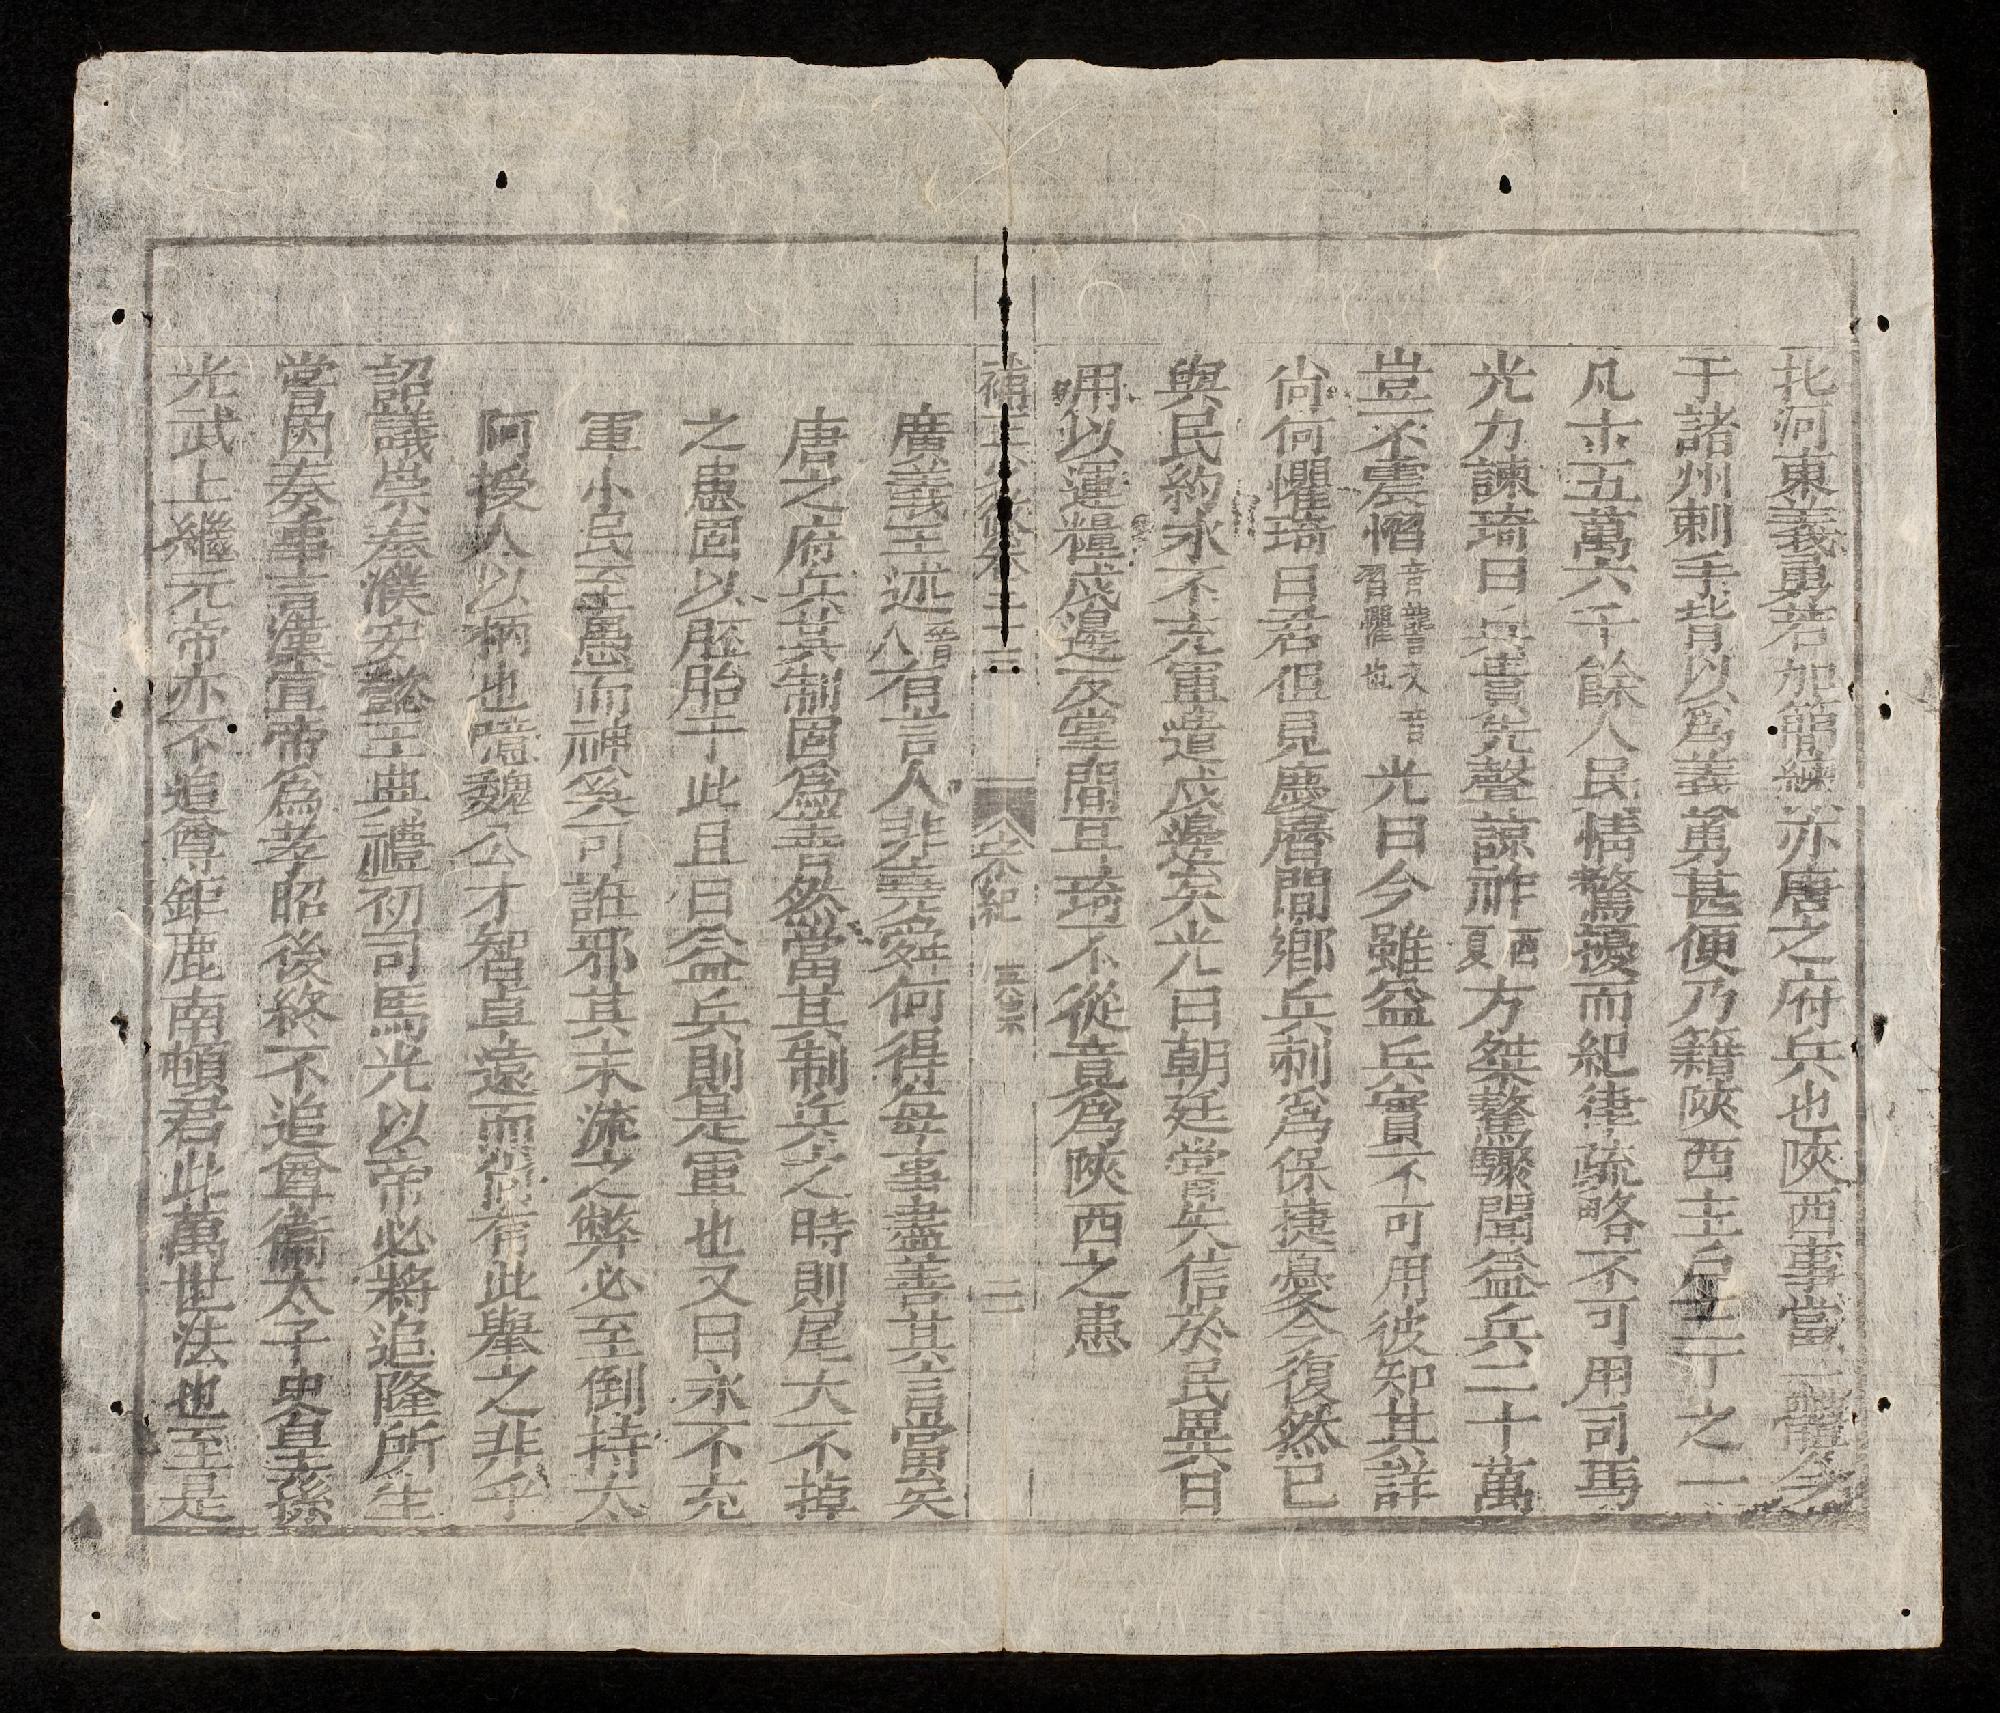 北河東義勇若加簡練亦唐之府兵也陜西事當一體今
于諸州刺手背以爲義勇甚便乃籍陜西主戶三丁之一
凡十五萬六千餘人民情驚擾而紀律疏略不可用司馬
光力諫琦曰兵貴先聲諒祚西夏方桀驁驟聞益兵二十萬
豈不震慴音讋又音習懼也光曰今雖益兵實不可用彼知其詳
尚何懼琦曰君但見慶曆間鄉兵刺爲保捷憂今復然已
與民約永不充軍遣戍邊矣光曰朝廷嘗失信於民異日
用以運糧戍邊反掌間耳琦不從竟爲陜西之患
本紀 英宗 二
廣義王述晉人有言人非堯舜何得每事盡善其言當矣
唐之府兵其制固爲善然當其制兵之時則尾大不掉
之患固以胚胎于此且曰益兵則是軍也又曰永不充
軍小民至愚而神奚可誑邪其末流之弊必至倒持太
阿授人以柄也噫魏公才智卓遠而尚有此舉之非乎
詔議崇奉濮安懿王典禮初司馬光以帝必將追隆所生
嘗因奏事言漢宣帝爲孝昭後終不追尊衞太子史皇孫
光武上繼元帝亦不追尊鉅鹿南頓君此萬世法也至是